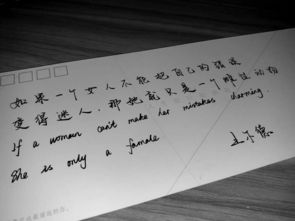 如果一个女人不能把自己的错误
变得迷人，那她就只是一个雌性动物
If a woman can't make her mistakes charming.
She is only a famale
王小